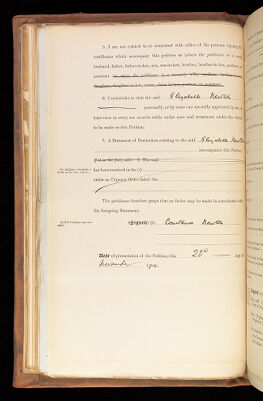 5. I am not related to or connected with either of the persons signing the
certificates which accompany this petition as (where the petitioner is a man)
husband, father, father-in-law, son, son-in-law, brother, brother-in-law, partner, or
assistant
6. I undertake to visit the said Elizabeth Newton
personally, or by some one specially appointed by me, at
least once in every six months while under care and treatment under the Order
to be made on this Petition.
7. A Statement of Particulars relating to the said Elizabeth Newton
accompanies this Petition.
has been received in the
under an Urgency Order dated the
The petitioner therefore prays that an Order may be made in accordance with
the foregoing Statement.
(Signed) Constance Newton
Date of presentation of the Petition, this 23rd day of
November 1912.